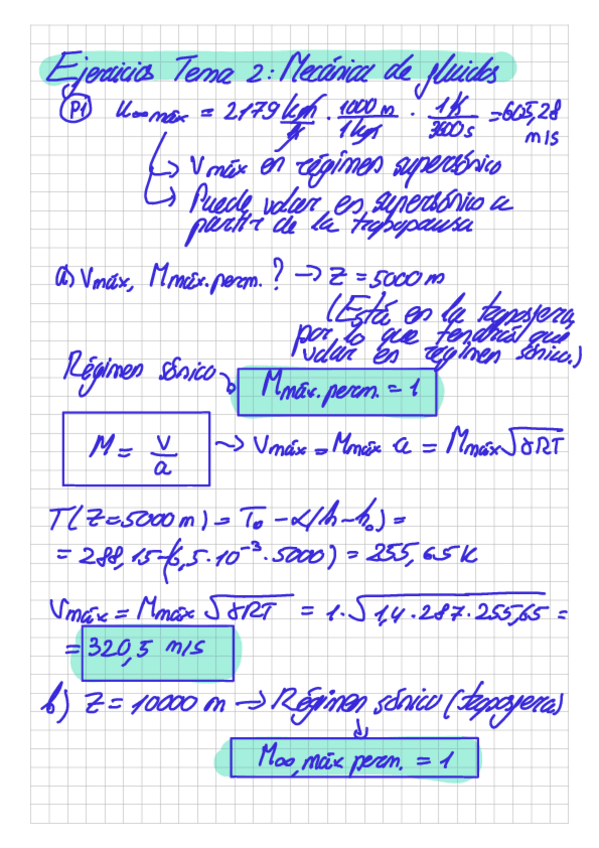 Ejercicios Tema 2: Mecánica de fluidos
P1 u∞máx = 2179 km/h · 1000 m/1 km · 1 h/3600 s = 605,28 m/s
↳ Vmáx en régimen supersónico
↳ Puede volar en supersónico a
partir de la tropopausa
a) Vmáx, Mmáx.perm.? → Z = 5000 m
(Está en la troposfera,
por lo que tendrá que
volar en régimen sónico.)
Régimen sónico → Mmáx.perm. = 1
M = v/a → Vmáx = Mmáx a = Mmáx √γRT
T(Z=5000 m) = T₀ - α(h-h₀) =
= 288,15-(6,5·10⁻³·5000) = 255,65 K
Vmáx = Mmáx √γRT = 1·√1,4·287·255,65 =
= 320,5 m/s
b) Z = 10000 m → Régimen sónico (troposfera)
M∞,máx perm. = 1